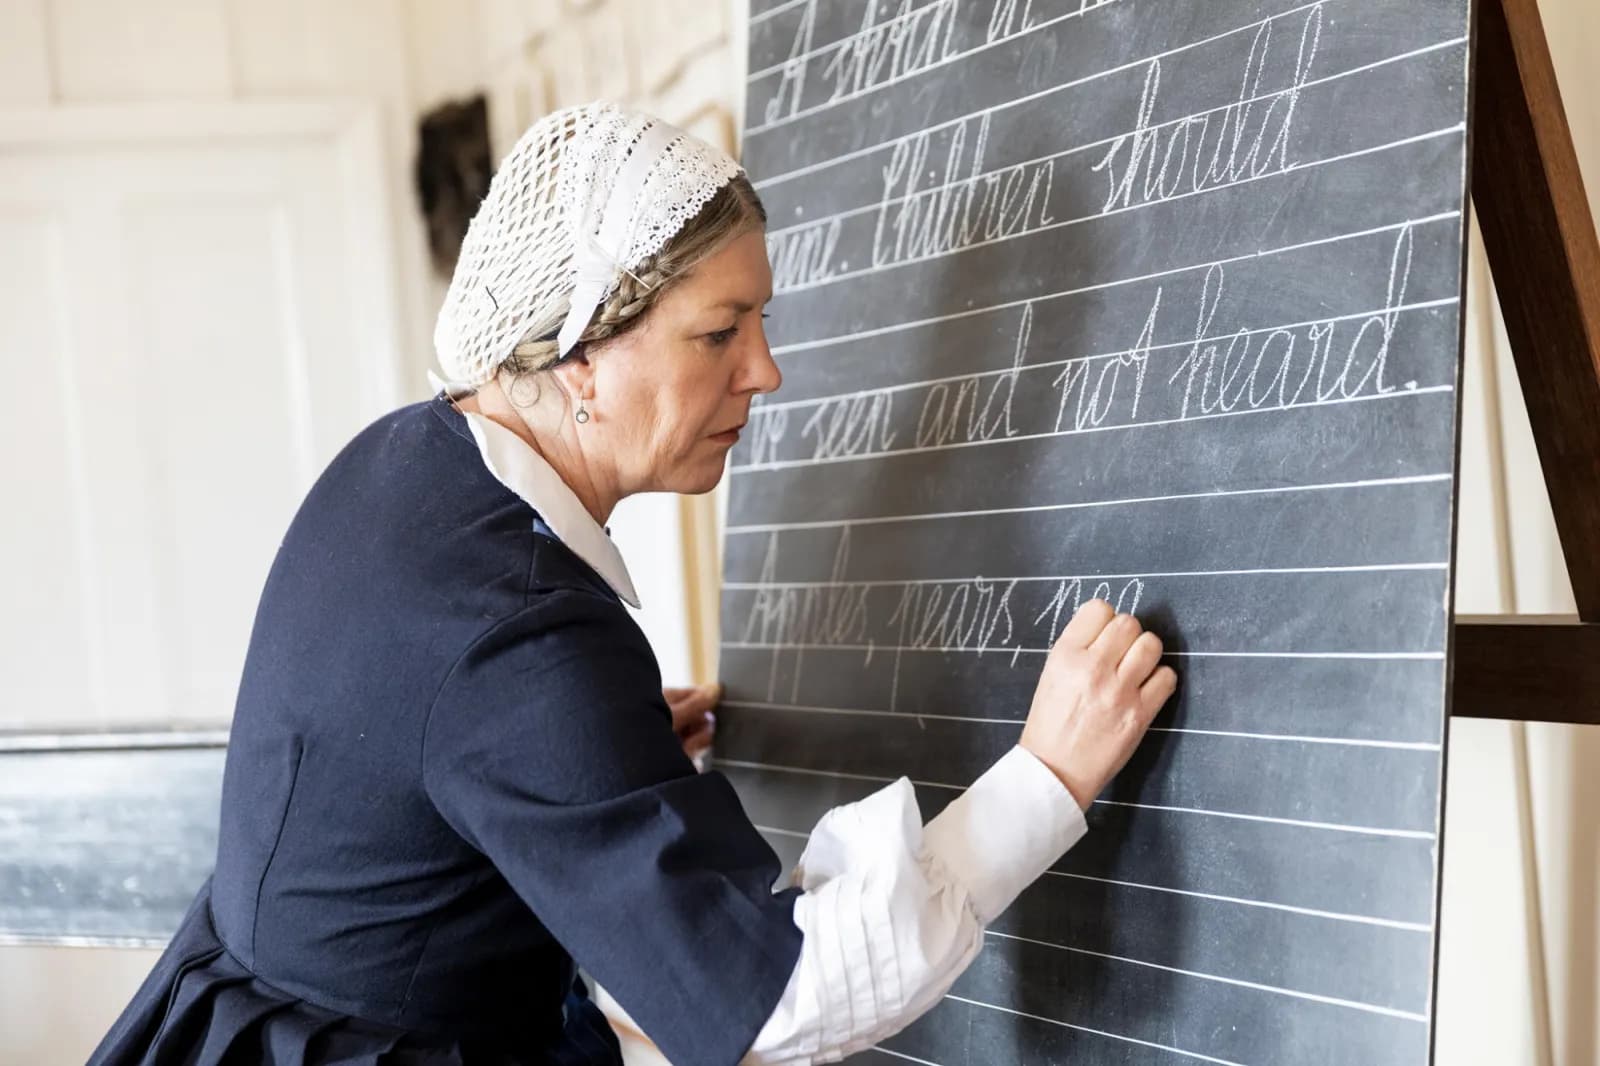 A stitch in
nine. Children should
be seen and not heard.
Apples, pears, pea